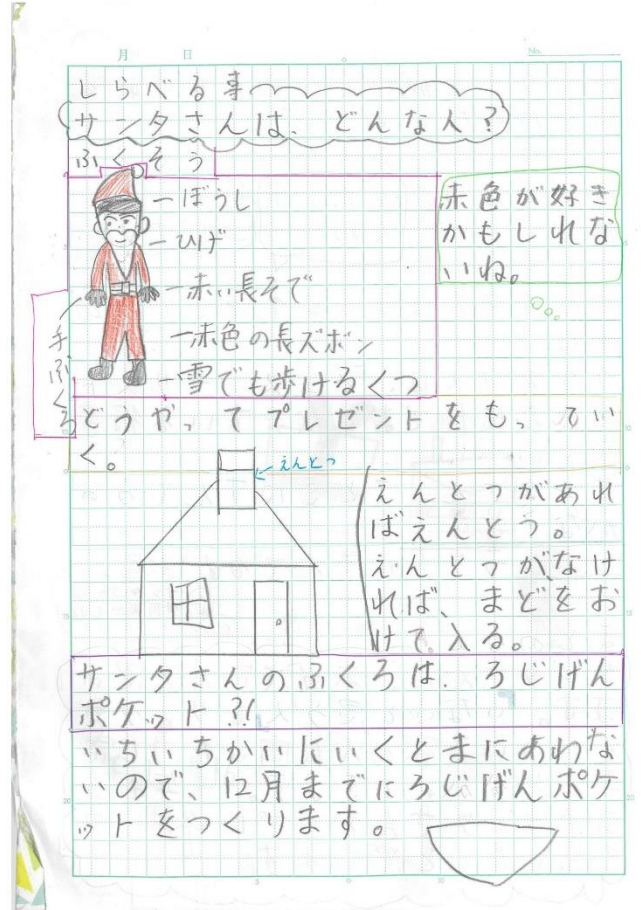 月 日 No.
しらべる事
サンタさんは、どんな人?
ふくそう
ぼうし
ひげ
赤い長そで
赤色の長ズボン
雪でも歩けるくつ
手ぶくろ
赤色が好き
かもしれな
いね。
どうやってプレゼントをもってい
く。
えんとつ
えんとつがあれ
ばえんとう。
えんとつが、なけ
れば、まどをお
けて入る。
サンタさんのふくろは、ろじげん
ポケット?!
いちいちかいにいくとまにあわな
いので、12月までにろじげんポケ
ットをつくります。